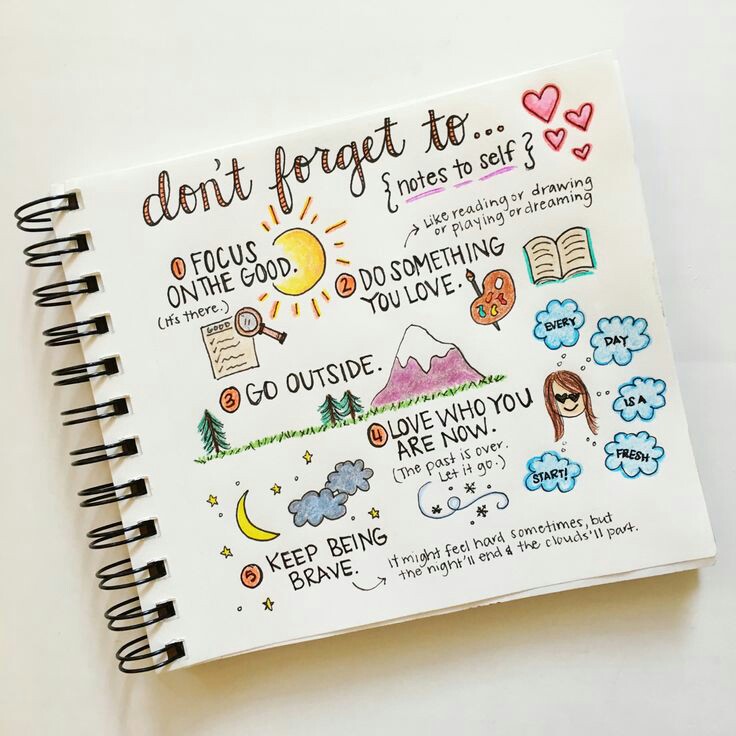 don't forget to...
{notes to self}
① FOCUS
ON THE GOOD.
(It's there.)
GOOD
② DO SOMETHING
YOU LOVE.
Like reading or drawing
or playing or dreaming
③ GO OUTSIDE.
④ LOVE WHO YOU
ARE NOW.
(The past is over.
Let it go.)
EVERY
DAY
IS A
FRESH
START!
⑤ KEEP BEING
BRAVE.
It might feel hard sometimes, but
the night'll end & the clouds'll part.